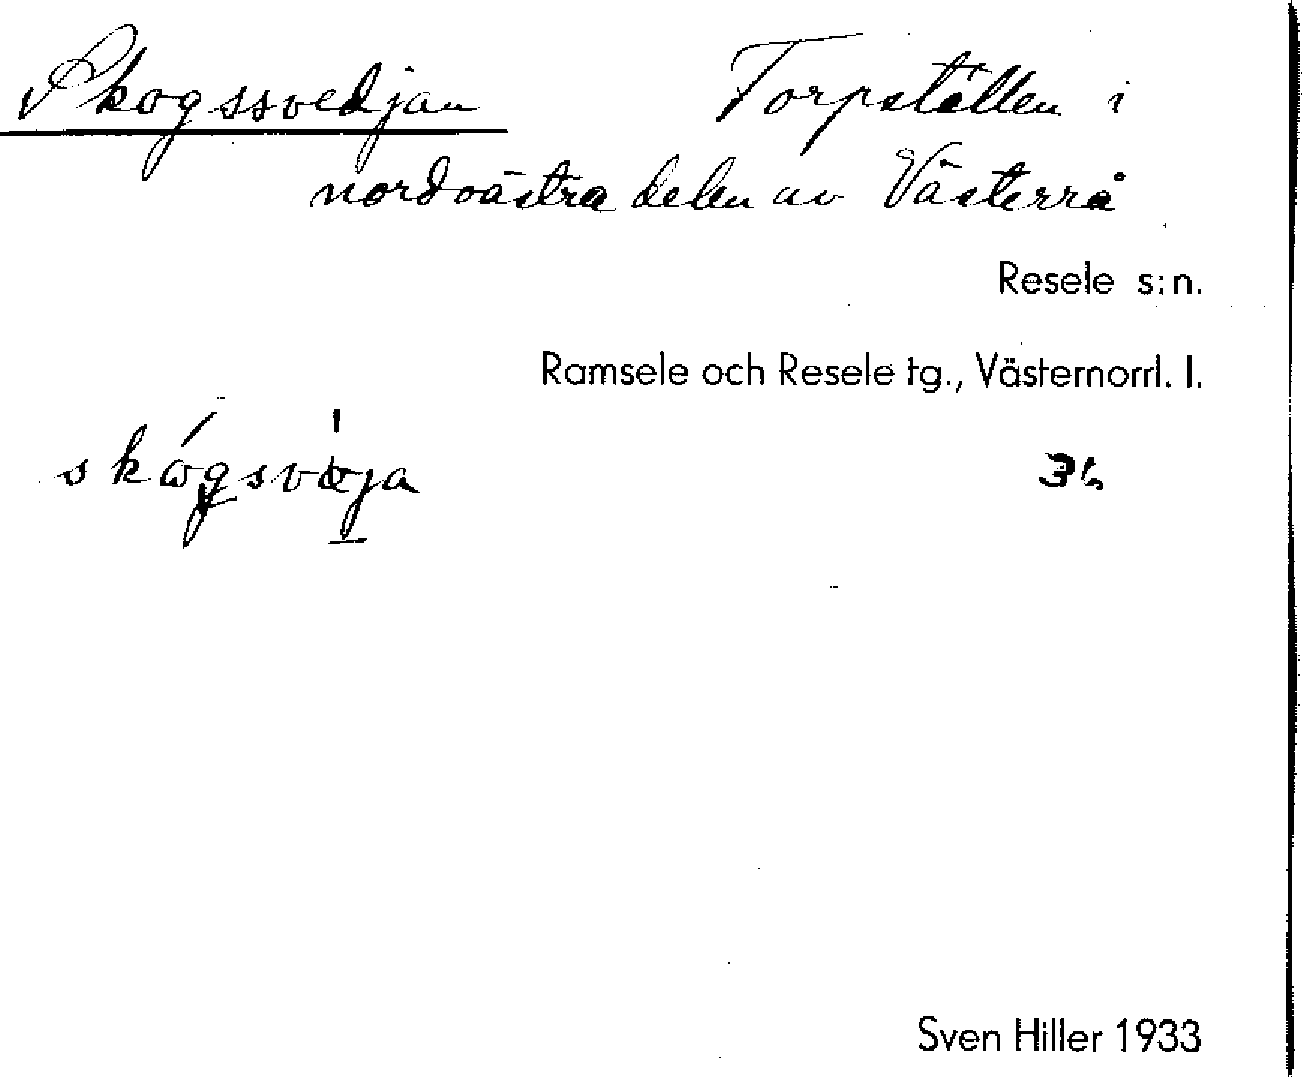 Skogssvedjan Torpställen i
nordvästra delen av Västerrå
Resele s:n.
Ramsele och Resele tg., Västernorrl. l.
Sven Hiller 1933